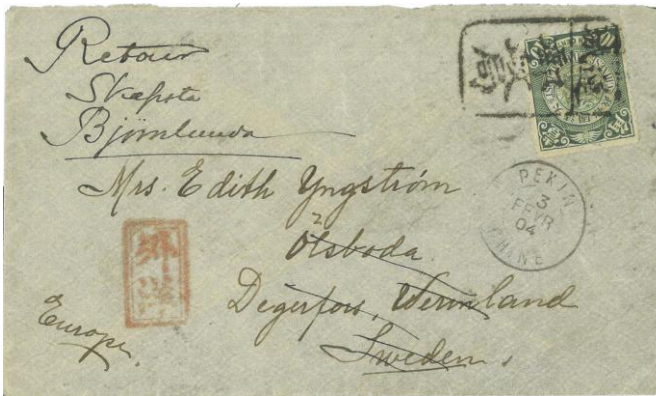 Retour
Skapsta
Björnlunda
Mrs. Edith Yngström
Olsboda.
Degerfors, Wermland
Sweden.
Europe.
PEKIN
3
FEVR
04
CHINE
外